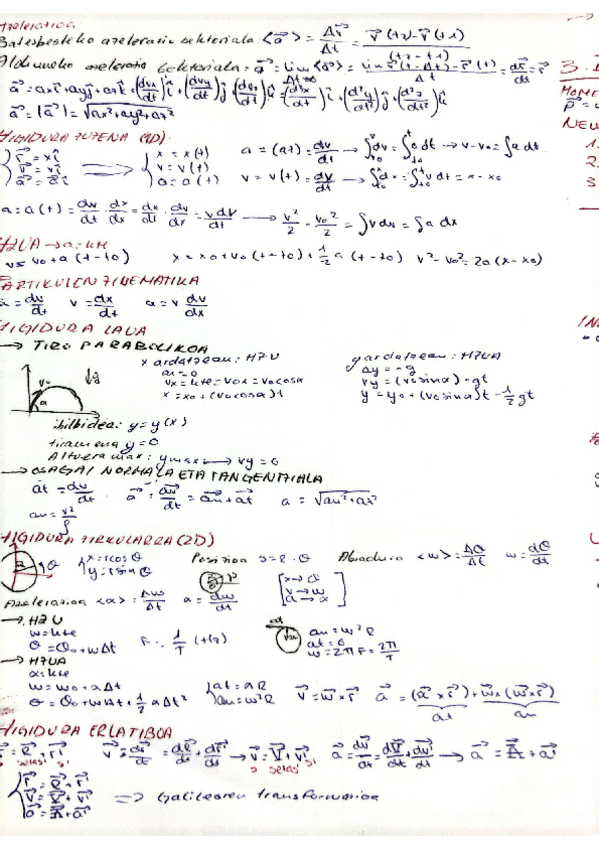 Azelerazioa
Batezbesteko azelerazio bektoriala: <a⃗> = Δv⃗/Δt = (v⃗(t2) - v⃗(t1))/(t2 - t1)
Aldiuneko azelerazio bektoriala: a⃗ = lim Δt→0 <a⃗> = lim (v⃗(t-Δt) - v⃗(t))/Δt = dv⃗/dt
a⃗ = |a⃗| = √(ax²+ay²+az²)
HIGIDURA ZUZENA (1D)
x = x(t)
v = v(t)
a = a(t)
a = a(t) = dv/dt → ∫dv = ∫a dt → v - v0 = ∫a dt
v = v(t) = dx/dt → ∫dx = ∫v dt = x - x0
v²/2 - v0²/2 = ∫v dv = ∫a dx
HZUA → a = kte
v = v0 + a(t - t0) x = x0 + v0(t - t0) + 1/2 a(t - t0) v² - v0² = 2a(x - x0)
PARTIKULEN ZINEMATIKA
a = dv/dt v = dx/dt a = v dv/dx
HIGIDURA LAUA
→ TIRO PARABOLIKOA
x ardatzean: HZU
ax = 0
vx = kte = v0x = v0 cosα
x = x0 + (v0 cosα)t
y ardatzean: HZUA
ay = -g
vy = (v0 sinα) - gt
y = y0 + (v0 sinα)t - 1/2 gt
ibilbidea: y = y(x)
tiramena y = 0
Altuera max: ymax → vy = 0
→ OSAGAI NORMALA ETA TANGENTZIALA
at = dv/dt a⃗ = dv⃗/dt = an⃗ + at⃗ a = √(an² + at²)
an = v²/ρ
HIGIDURA ZIRKULARRA (2D)
x = r cosθ
y = r sinθ
Posizioa s = R·θ Abiadura <w> = Δθ/Δt w = dθ/dt
Azelerazioa <α> = Δw/Δt α = dw/dt
x → θ
v → w
a → α
→ HZU
w = kte
θ = θ0 + wΔt F = 1/T (Hz)
an = w²R
at = 0
w = 2πF = 2π/T
→ HZUA
α = kte
w = w0 + αΔt
θ = θ0 + w0Δt + 1/2 αΔt²
at = αR
an = w²R
v⃗ = w⃗ × r⃗ a⃗ = (α⃗ × r⃗) + w⃗ × (w⃗ × r⃗)
at an
HIGIDURA ERLATIBOA
r⃗ = R⃗ + r⃗' v⃗ = dr⃗/dt = dR⃗/dt + dr⃗'/dt → v⃗ = V⃗ + v⃗' a⃗ = dv⃗/dt = dV⃗/dt + dv⃗'/dt → a⃗ = A⃗ + a⃗'
r⃗ = R⃗ + r⃗'
v⃗ = V⃗ + v⃗'
a⃗ = A⃗ + a⃗'
⇒ Galileoren transformazioa
3.
MOME
NEW
1.
2.
3